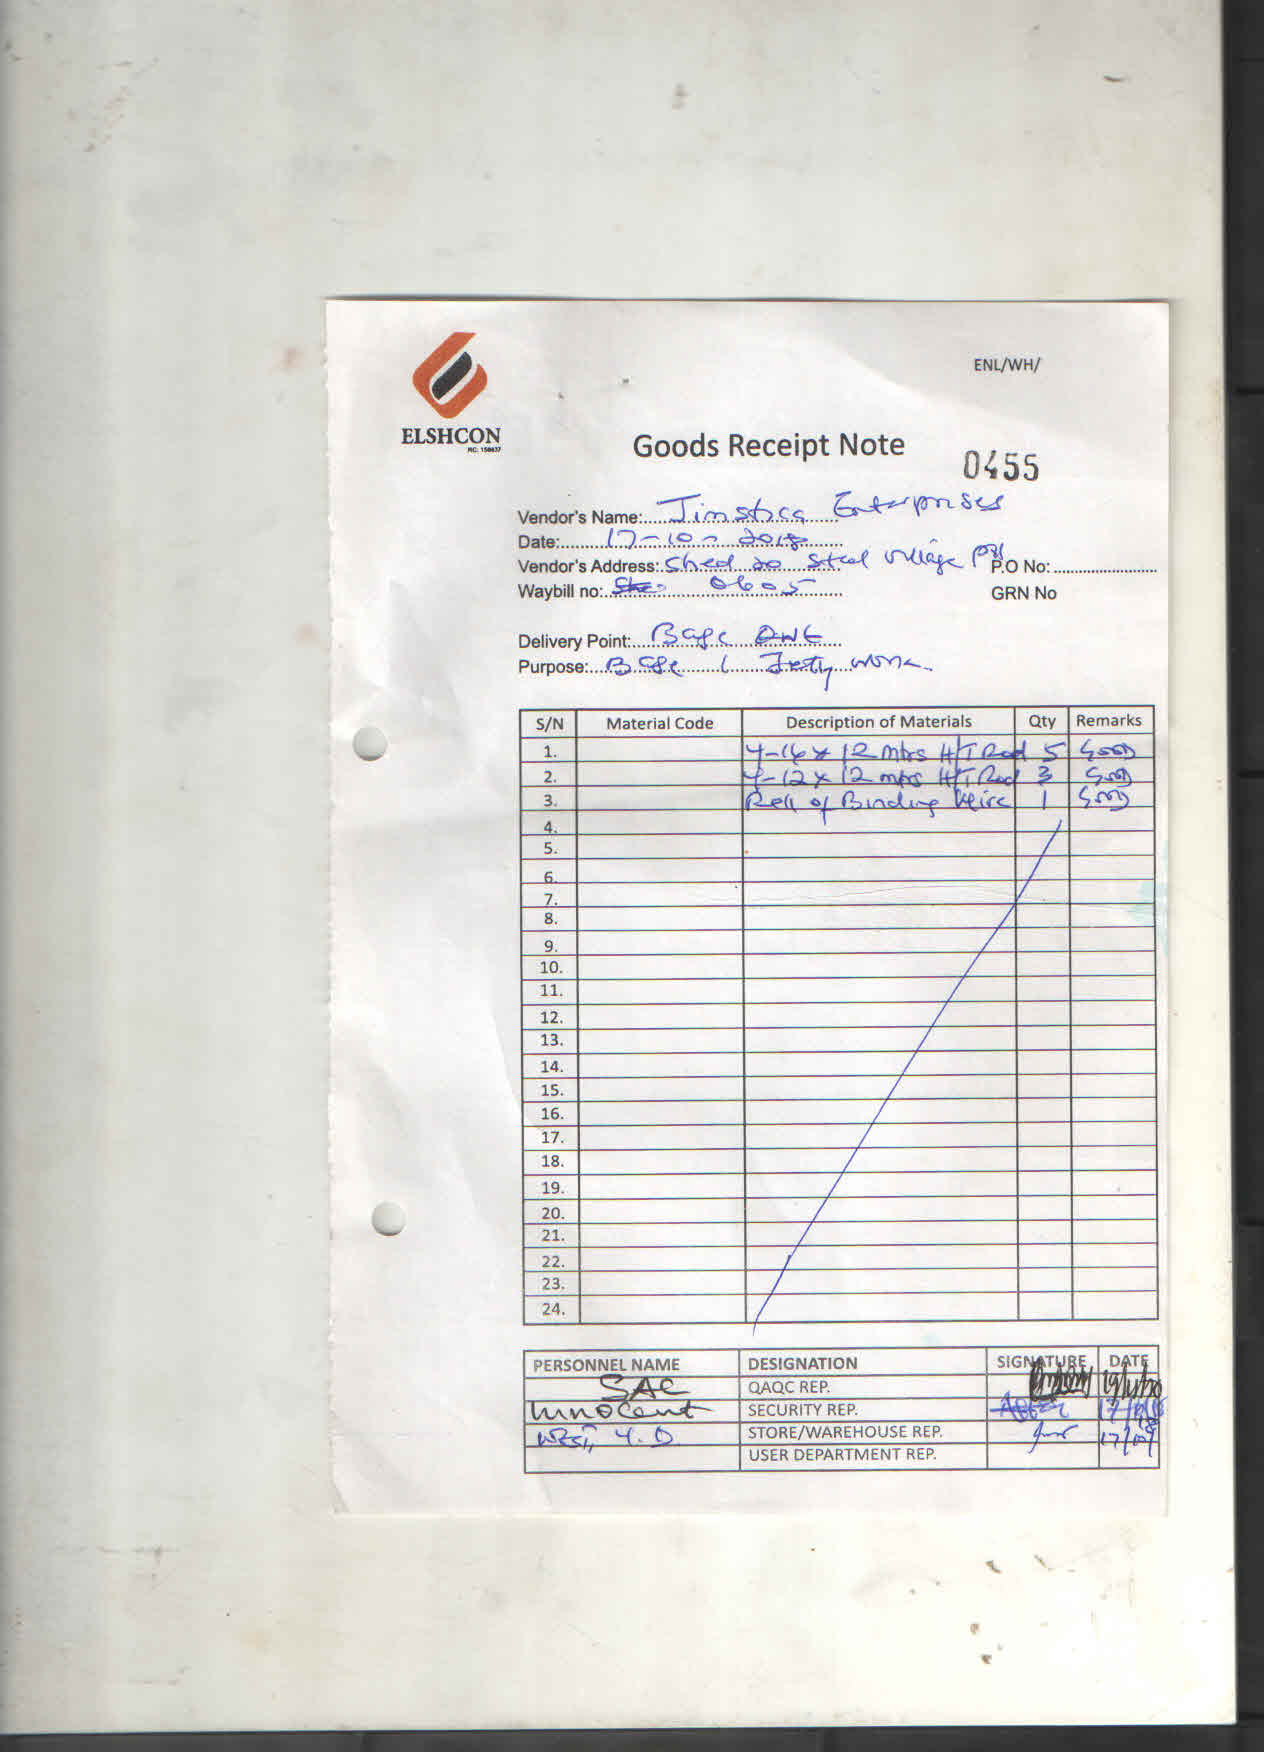 ENL/WH/
ELSHCON
RC: 156637
Goods Receipt Note
0455
Vendor's Name: Jimstica Enterprises
Date: 17-10-2018
Vendor's Address: Shed 20 Steel Village PH P.O No:
Waybill no: 0605 GRN No
Delivery Point: Base One
Purpose: Base 1 Jetty work.
S/N Material Code Description of Materials Qty Remarks
1. Y-16 x 12 mtrs H/T Rod 5 Good
2. Y-12 x 12 mtrs H/T Rod 3 Good
3. Roll of Binding Wire 1 Good
4.
5.
6.
7.
8.
9.
10.
11.
12.
13.
14.
15.
16.
17.
18.
19.
20.
21.
22.
23.
24.
PERSONNEL NAME DESIGNATION SIGNATURE DATE
SAC QAQC REP.
Innocent SECURITY REP.
Y.D. STORE/WAREHOUSE REP.
USER DEPARTMENT REP.